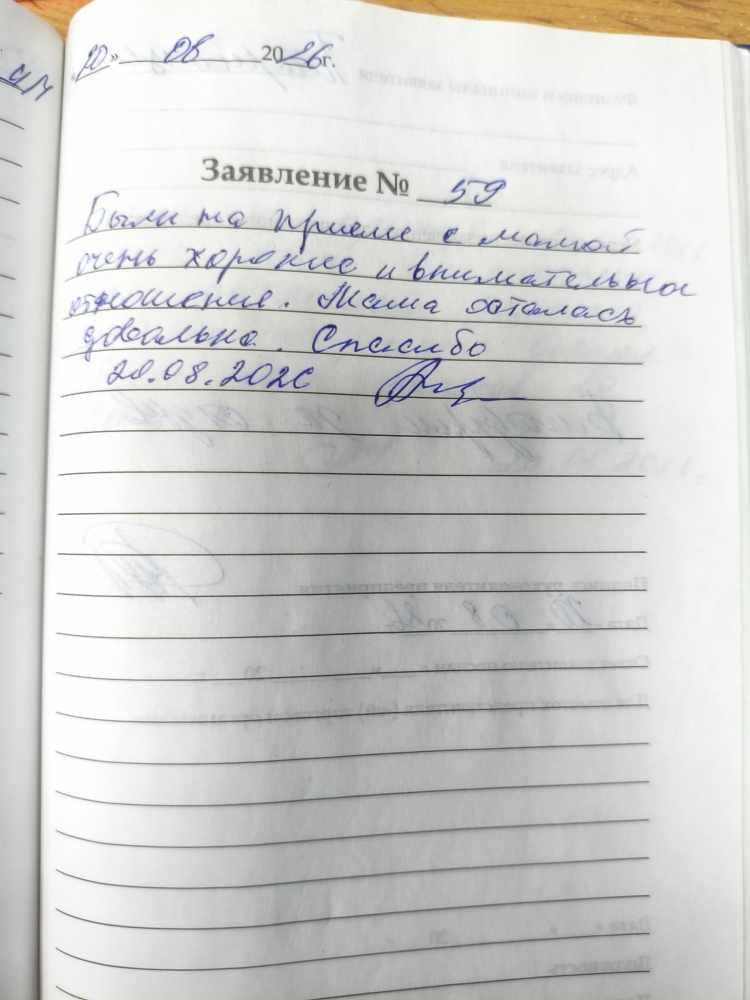 «20» 08 2026г.
Заявление № 59
Были на приеме с мамой
очень хорошие и внимательное
отношение. Мама осталась
довольна. Спасибо
20.08.2026